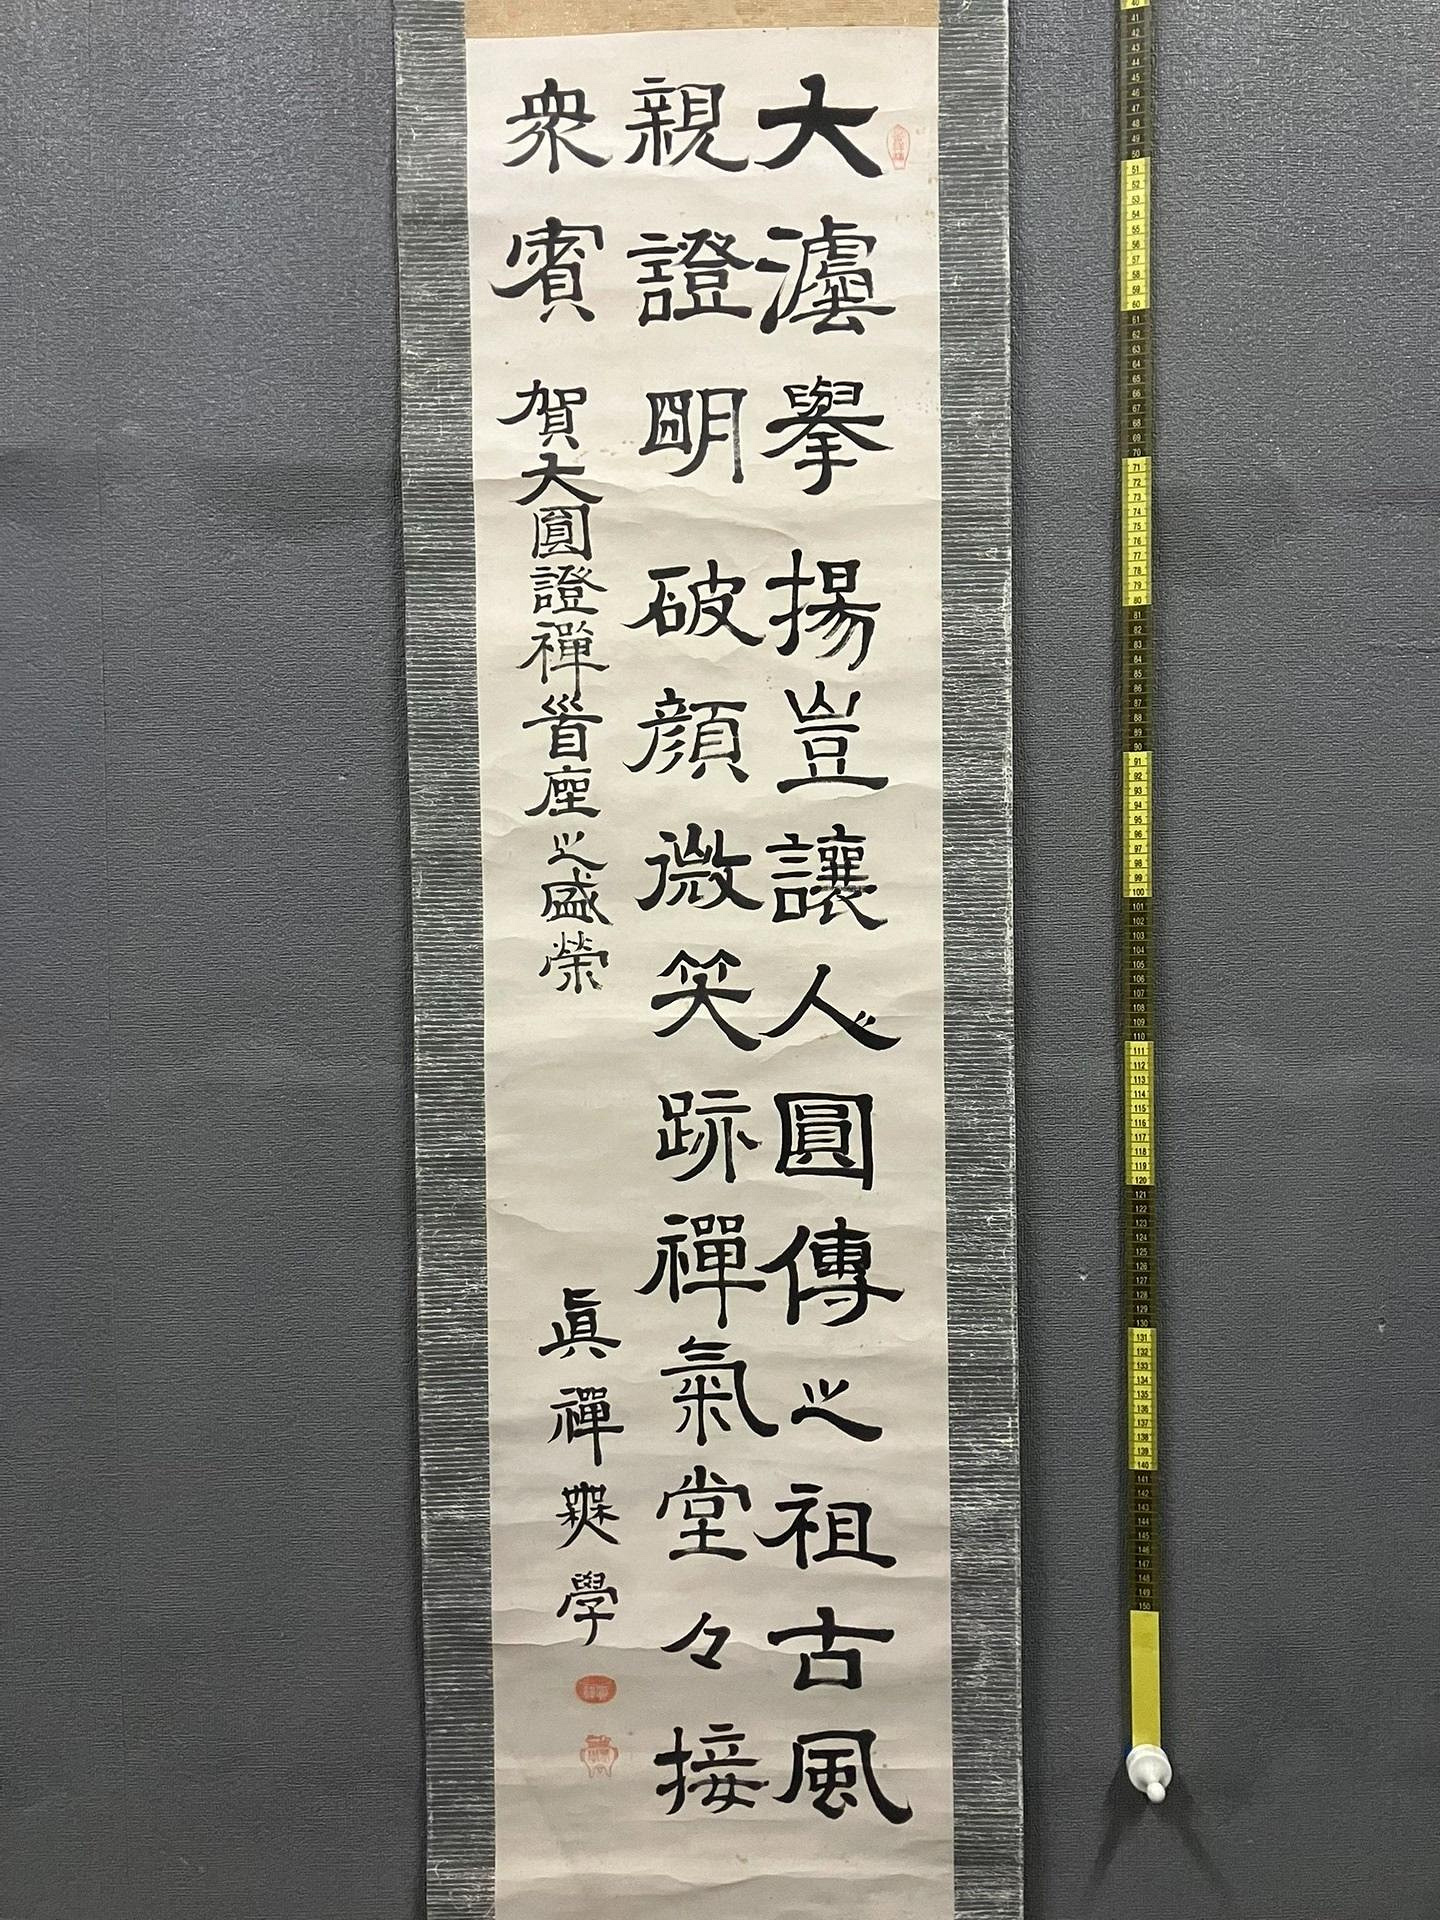 大灋擧揚豈讓人圓傳之祖古風
親證明破顔微笑跡禪氣堂々接
衆賓 賀大圓證禪首座之盛榮
眞禪橆學